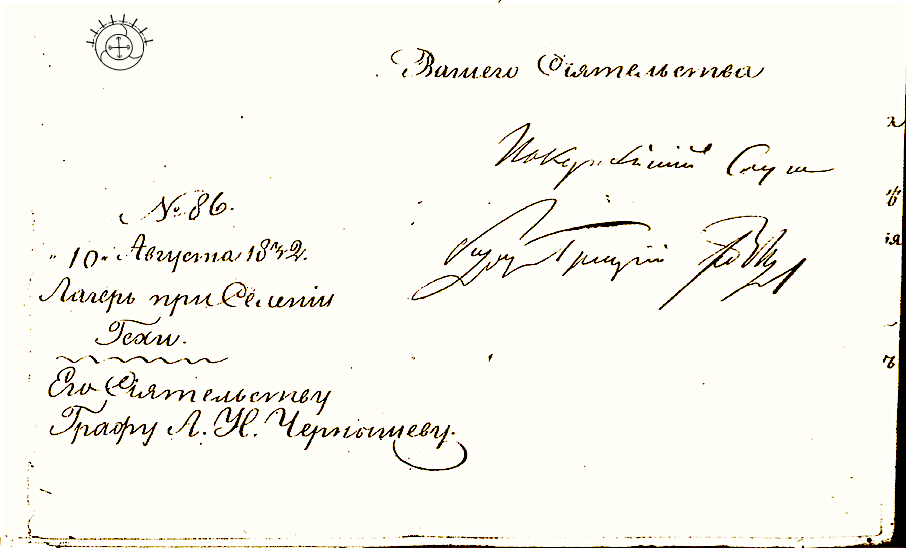 Вашего Сіятельства
Покорнѣйшій Слуга
№ 86.
"10" Августа 1832.
Лагерь при Селеніи
Гехи.
Его Сіятельству
Графу А. И. Чернышеву.